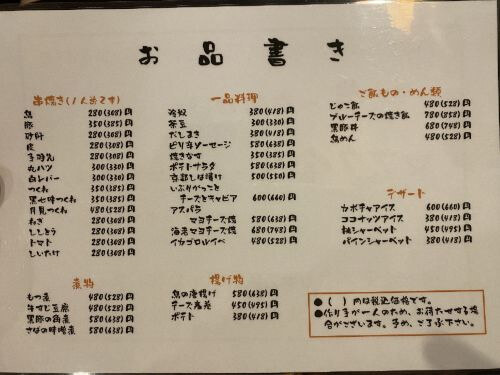 お品書き
串焼き(1人前です)
鳥 280(308)円
豚 350(385)円
砂肝 280(308)円
皮 280(308)円
手羽先 280(308)円
丸ハツ 300(330)円
白レバー 300(330)円
つくね 350(385)円
黒七味つくね 350(385)円
月見つくね 480(528)円
ねぎ 280(308)円
ししとう 280(308)円
トマト 280(308)円
しいたけ 280(308)円
煮物
もつ煮 480(528)円
牛すじ豆腐 480(528)円
黒豚の角煮 580(638)円
さばの味噌煮 580(638)円
一品料理
冷奴 380(418)円
茶豆 300(330)円
だしまき 380(418)円
ピリ辛ソーセージ 580(638)円
焼きなす 350(385)円
ポテトサラダ 580(638)円
京都しば漬け 500(550)円
いぶりがっこと
チーズとキャビア 600(660)円
アスパラ
マヨチーズ焼 580(638)円
海老マヨチーズ焼 680(748)円
イカゴロルイベ 480(528)円
揚げ物
鳥の唐揚げ 580(638)円
チーズ 450(495)円
ポテト 380(418)円
ご飯もの・めん類
じゃこ飯 480(528)円
ブルーチーズの焼き飯 780(858)円
黒豚丼 680(748)円
鳥めん 480(528)円
デザート
カボチャアイス 600(660)円
ココナッツアイス 380(418)円
柚シャーベット 450(495)円
パインシャーベット 380(418)円
●( )内は税込価格です。
●作り手が一人のため、お待たせする場
合がございます。予め、ご了承下さい。